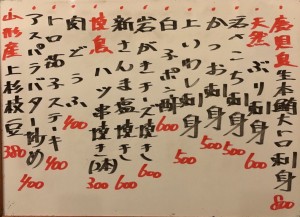 鹿児島産生本鮪大トロ刺身 800
天然ぶり刺身 600
めごち刺身 500
かつお刺身 500
上いわし刺身 500
白子ポン酢 600
岩がきチーズ焼き 600
新さんま塩焼き 600
徳島 ハツ串焼き(2本) 300
肉どうふ 400
トロ茄子ステーキ 400
アスパラバター炒め 400
山形産上杉枝豆 380